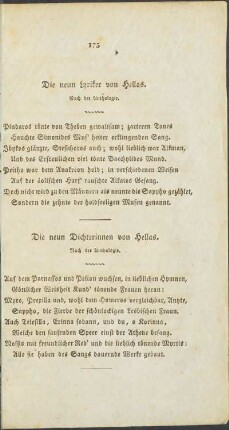 175
Die neun Lyriker von Hellas.
Nach der Anthologie.
Pindaros tönte von Theben gewaltsam; zarteren Tones
Hauchte Simonides Mus' heiter erklingenden Sang.
Ibykos glänzte, Stesichoros auch; wohl lieblich war Alkman,
Und das Erfreulichen viel tönte Bacchylides Mund.
Peitho war dem Anakreon hold; in verschiedenen Weisen
Auf der äolischen Harf' rauschte Alkäios Gesang.
Doch nicht wird zu den Männern als neunte die Sappho gezählet,
Sondern die zehnte der holdseligen Musen genannt.
Die neun Dichterinnen von Hellas.
Nach der Anthologie.
Auf dem Parnassos und Pklian wuchsen, in lieblichen Hymnen,
Göttlicher Weisheit Kund' tönende Frauen heran:
Myro, Praxilla und, wohl dem Homeros vergleichbar, Anyte,
Sappho, die Zierde der schönlockigen Lesbischen Frauen.
Auch Telesilla, Erinna sodann, und du, o Korinna,
Welche den saufenden Speer einst der Athene besang.
Nossis mit freundlicher Red' und die lieblich tönende Myrtis:
Alle sie haben des Sangs dauernde Werke gebaut.